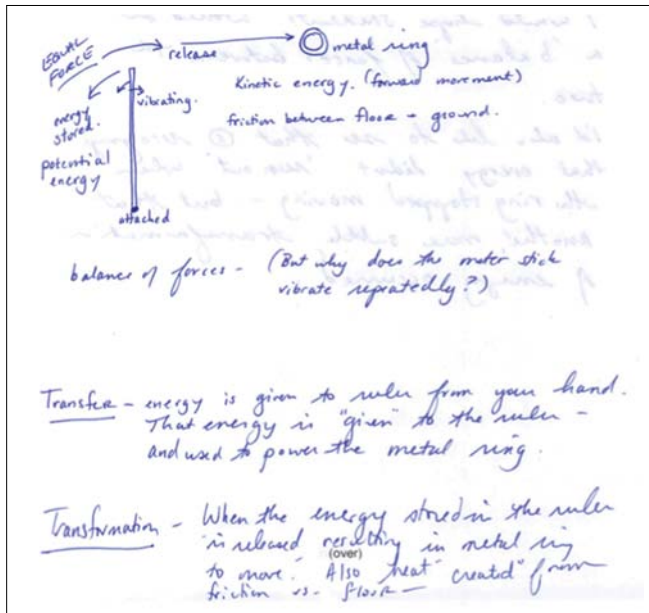 EQUAL
FORCE
release
metal ring
Kinetic energy. (forward movement)
energy
stored.
vibrating.
friction between floor + ground.
potential
energy
attached
balance of forces - (But why does the meter stick
vibrate repeatedly?)
Transfer - energy is given to ruler from your hand.
That energy is "given" to the ruler -
and used to power the metal ring.
Transformation - When the energy stored in the ruler
is released resulting in metal ring
(over)
to move. Also heat "created" from
friction vs. floor -